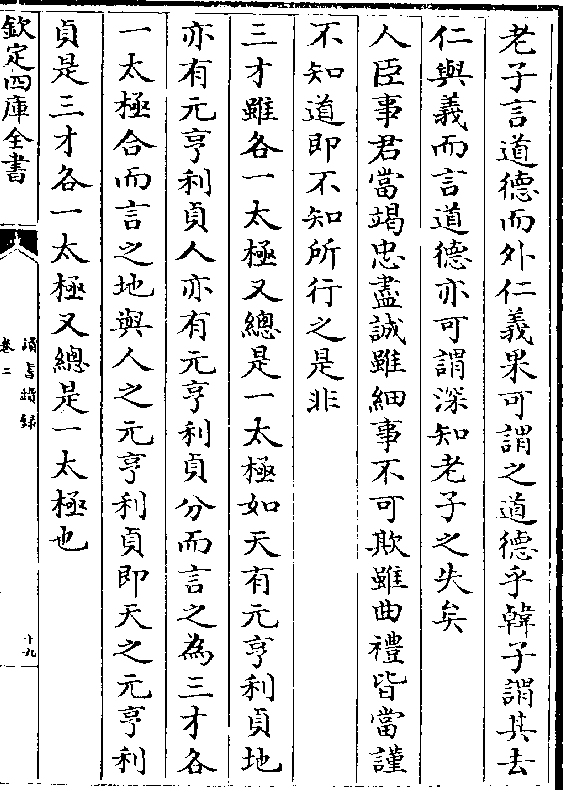 老子言道德而外仁義果可謂之道德乎韓子謂其去
仁與義而言道德亦可謂深知老子之失矣
人臣事君當竭忠盡誠雖細事不可欺雖曲禮皆當謹
不知道即不知所行之是非
三才雖各一太極又總是一太極如天有元亨利貞地
亦有元亨利貞人亦有元亨利貞分而言之為三才各
一太極合而言之地與人之元亨利貞即天之元亨利
貞是三才各一太極又總是一太極也
欽定四庫全書
讀書續錄
卷二
十九